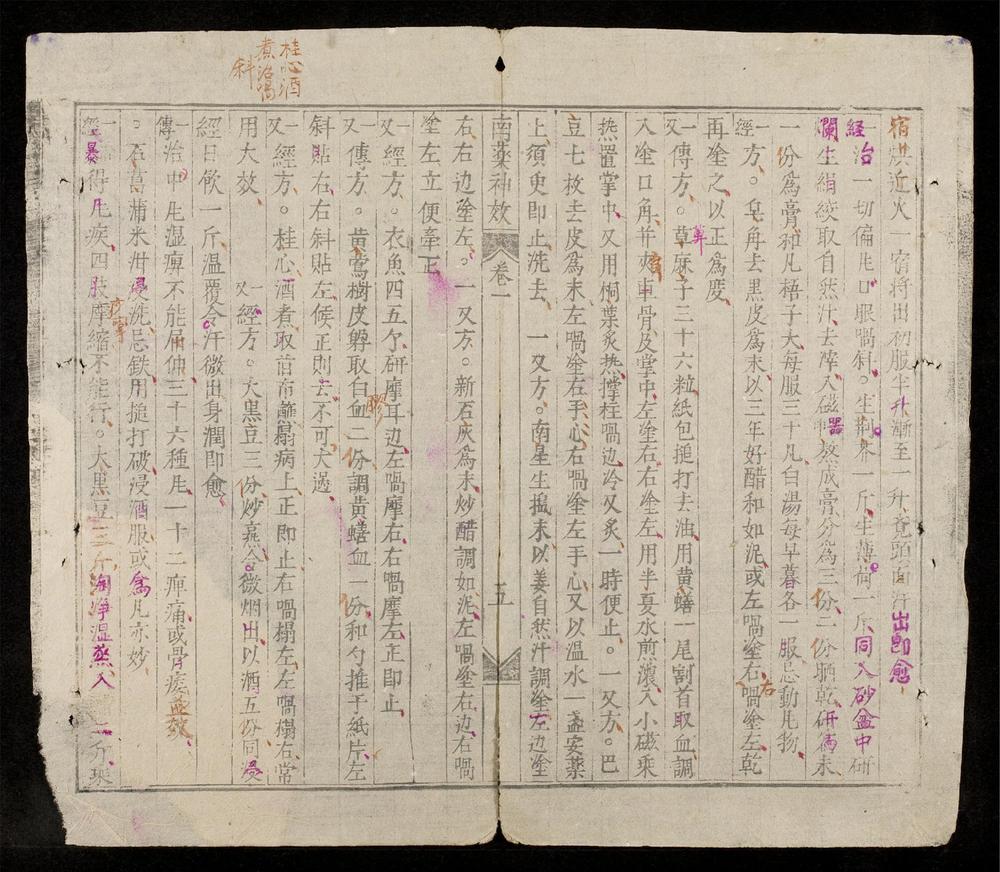 桂心酒
煮治喎
斜
宿烘近火一宿将出初服半升漸至一升竟頭面汗出即愈
経治一切偏凮口眼喎斜。生荆芥一斤生薄荷一斤同入砂盆中研
爛生絹絞取自然汁去滓入磁器熬成膏分為三分二份晒乾研為末
一份為膏和凡梧子大每服三十凡白湯每早暮各一服忌動凮物
一経方。皂角去黑皮為末以三年好醋和如泥或左喎塗右右喎塗左乾
再塗之以正為度
一又傳方。草麻子三十六粒紙包搥打去油用黄蟮一尾割首取血調
入塗口角并夾車骨皮掌中左塗右右塗左用半夏水煎濃入小磁乘
热置掌中又用桐葉炙热撑柱喎边冷又炙一時便止。一又方。巴
豆七枚去皮為末左喎塗右手心右喎塗左手心又以温水一盞安薬
上須臾即止洗去 一又方。南星生搗末以姜自然汁調塗左边塗
南薬神效 卷一 五
右右边塗左。一又方。新石灰為末炒醋調如泥左喎塗右边右喎
塗左立便牽正
一又經方。衣魚四五个研摩耳边左喎摩右右喎摩左正即止
一又傳方。黄鶯樹皮膠取白血二份調黄蟮血一份和勺推于紙片左
斜貼右右斜貼左候正則去不可太过
一又經方。桂心酒煮取故布蘸搨病上正即止右喎搨左左喎搨右常
用大效 一又經方。大黑豆三份炒焦令微烟出以酒五份同浸
經日飲一斤温覆令汗微出身潤即愈
一傳治中凮湿痹不能屈伸三十六種凮一十二痺痛或骨痿益效
。石菖蒲米泔浸洗忌鉄用搥打破浸酒服或為凡亦妙
一經暴得凮疾四肢挛縮不能行。大黑豆三斤淘淨湿蒸入 二分乘